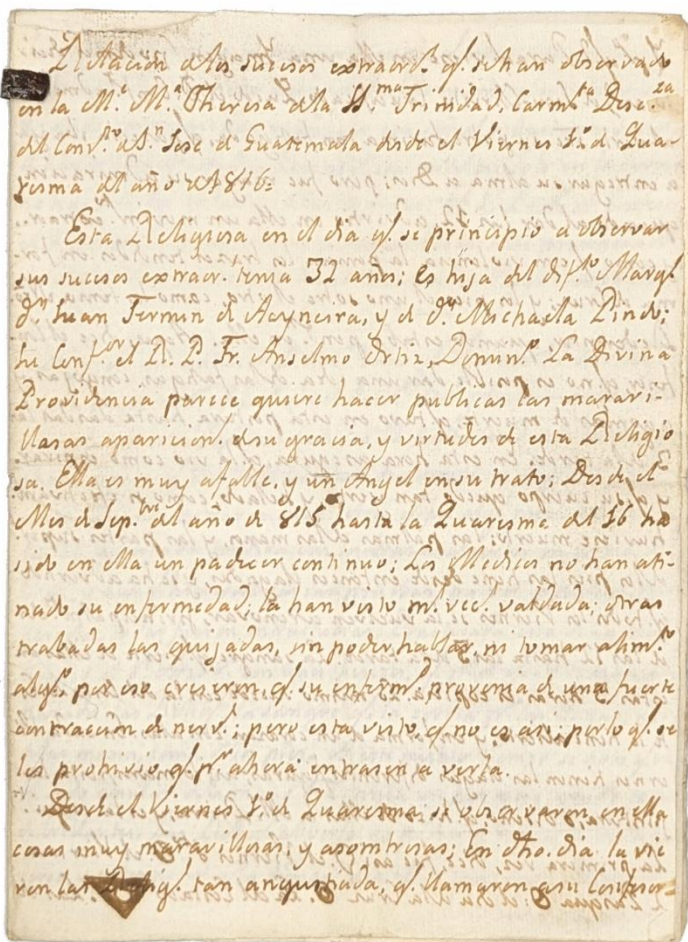 Relacion de los sucesos extraord.s q.e se han observado
en la M.e M.a Theresa de la SS.ma Trinidad, Carm.ta Desc.za
del Conv.to de S.n Jose de Guatemala desde el Viernes 1.o de Qua-
resma del año de 1816=
Esta Religiosa en el dia q.e se principio a observar
sus sucesos extraor.s tenia 32 años; es hija del dif.to Marq.s
d.n Juan Fermin de Aycineira, y de d.a Michaela Pinol;
su Conf.or el R. P. Fr. Anselmo Ortiz, Domin.o La Divina
Providencia parece quiere hacer publicas las maravi-
llosas aparicion.s de su gracia, y virtudes de esta Religio
sa. Ella es muy afable, y un Angel en su trato; Desde el
Mes de Sep.bre del año de 815 hasta la Quaresma del 16 ha
sido en ella un padecer continuo; Los Medicos no han ati-
nado su enfermedad; la han visto m.s vec.s valdada; otras
trabadas las quijadas, sin poder hablar, ni tomar alim.to
alg.o, por eso creieron, q.e su enferm.d provenia de una fuerte
contracción de nerv.s; pero esta visto q.e no es asi; por lo q.e se
les prohivio q.e p.r ahora entrasen a verla.
Desde el Viernes 1.o de Quaresma se observaron en ella
cosas muy maravillosas, y asombrosas; En dho. dia la vie
ron las Relig.s tan angustiada, q.e llamaron a su Confesor